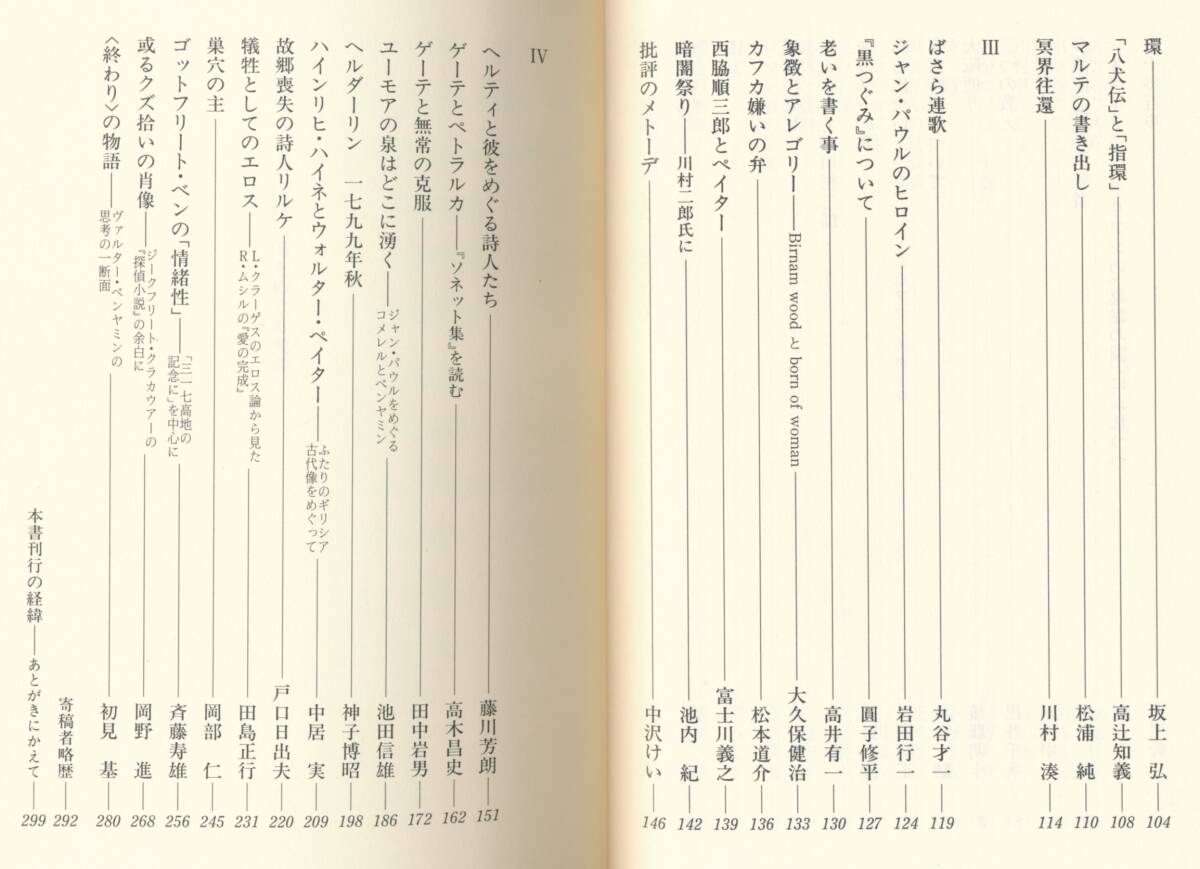 環――坂上 弘――104
「八犬伝」と「指環」――高辻知義――108
マルテの書き出し――松浦 純――110
冥界往還――川村 湊――114
III
ばさら連歌――丸谷才一――119
ジャン・パウルのヒロイン――岩田行一――124
『黒つぐみ』について――圓子修平――127
老いを書く事――高井有一――130
象徴とアレゴリー――Birnam wood と born of woman――大久保健治――133
カフカ嫌いの弁――松本道介――136
西脇順三郎とペイター――富士川義之――139
暗闇祭り――川村二郎氏に――池内 紀――142
批評のメトーデ――中沢けい――146
IV
ヘルティと彼をめぐる詩人たち――藤川芳朗――151
ゲーテとペトラルカ――『ソネット集』を読む――高木昌史――162
ゲーテと無常の克服――田中岩男――172
ユーモアの泉はどこに湧く――ジャン・パウルをめぐる
コメレルとベンヤミン――池田信雄――186
ヘルダーリン 一七九九年秋――神子博昭――198
ハインリヒ・ハイネとウォルター・ペイター――ふたりのギリシア
古代像をめぐって――中居 実――209
故郷喪失の詩人リルケ――戸口日出夫――220
犠牲としてのエロス――L・クラーゲスのエロス論から見た
R・ムシルの『愛の完成』――田島正行――231
巣穴の主――岡部 仁――245
ゴットフリート・ベンの「情緒性」――「三一七高地の
記念に」を中心に――斉藤寿雄――256
或るクズ拾いの肖像――ジークフリート・クラカウアーの
『探偵小説』の余白に――岡野 進――268
〈終わり〉の物語――ヴァルター・ベンヤミンの
思考の一断面――初見 基――280
寄稿者略歴――292
本書刊行の経緯――あとがきにかえて――299